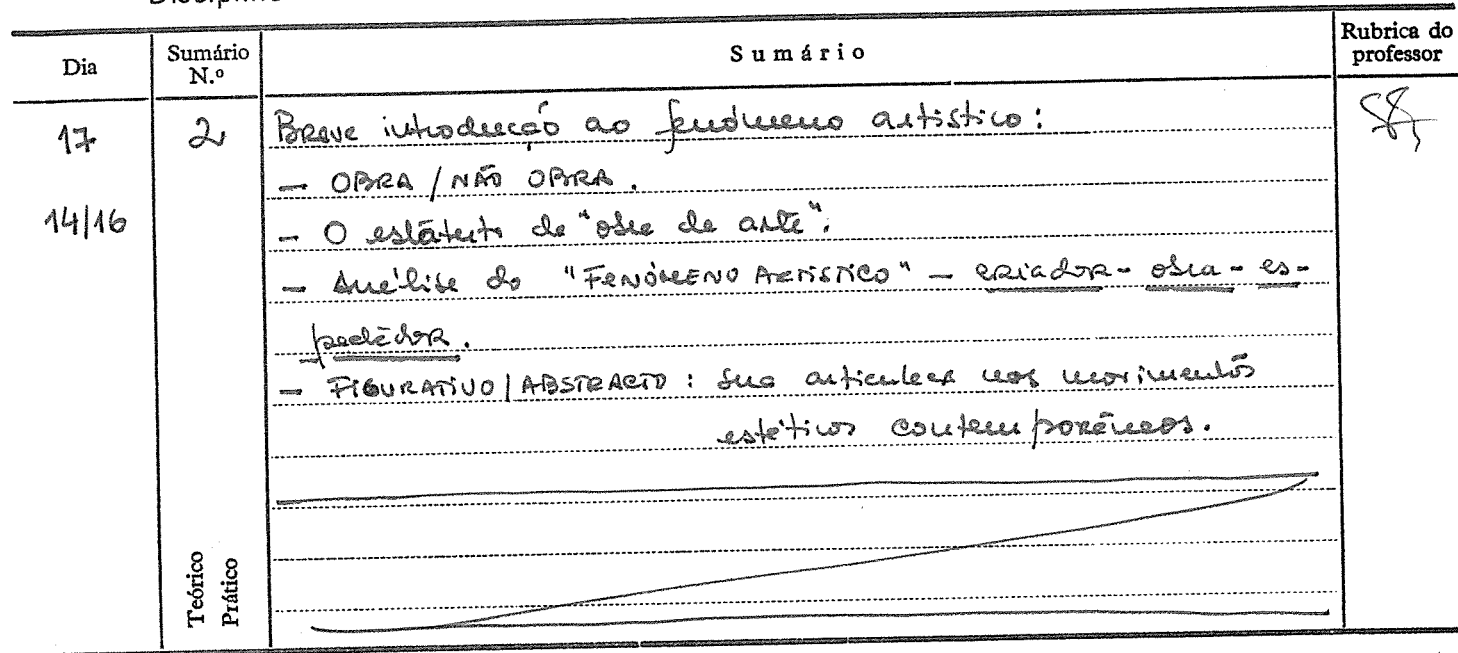 Disciplina
Dia
Sumário N.º
Sumário
Rubrica do professor
17
2
Breve introdução ao fenómeno artístico:
- OBRA / NÃO OBRA.
14/16
- O estatuto de "obra de arte".
- Análise do "FENÓMENO ARTÍSTICO" - criador - obra - es-
pectador.
- FIGURATIVO / ABSTRACTO: sua articulação nos movimentos
estéticos contemporâneos.
Teórico
Prático